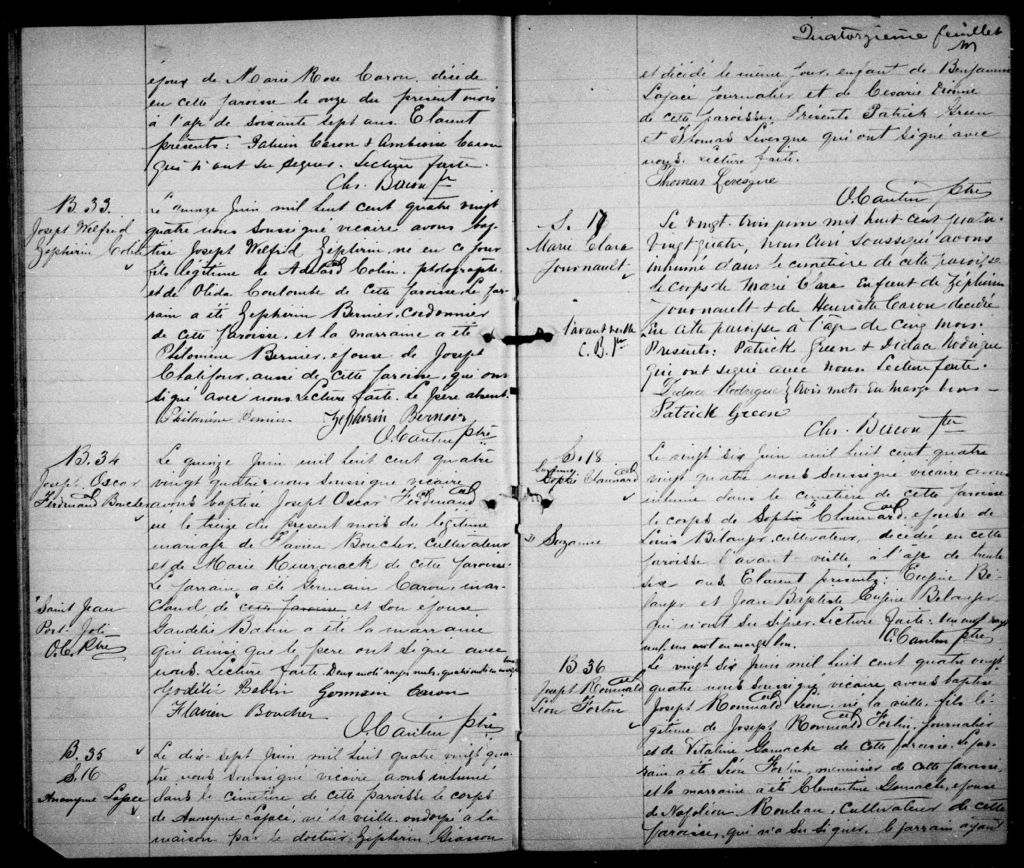 époux de Marie Rose Caron, décédé
en cette paroisse le onze du présent mois
à l'age de soixante sept ans. Etaient
présents: Caron & Ambroise Caron
qui n'ont su signer. Lecture faite.
Chs. Bacon Ptre
B. 33.
Joseph Wilfrid
Zéphirin Colin
Le quinze Juin mil huit cent quatre vingt
quatre nous soussigné vicaire avons bap-
tisé Joseph Wilfrid Zéphirin né en ce jour
fils légitime de Adélard Colin, photographe
et de Olida Coulombe de cette paroisse. Le par-
rain a été Zéphirin Bernier, Cordonnier
de cette paroisse, et la marraine a été
Philomène Bernier, épouse de Joseph
Chalifour, aussi de cette paroisse, qui ont
signé avec nous. Lecture faite. Le père absent.
Philomène Bernier Zéphirin Bernier
O. Cantin ptre
B. 34
Joseph Oscar
Ferdinand Boucher
Le quinze Juin mil huit cent quatre
vingt quatre nous soussigné vicaire
avons baptisé Joseph Oscar Ferdinand
né le treize du présent mois du légitime
mariage de Flavien Boucher, Cultivateur
et de Marie de cette paroisse
Le parrain a été Germain Caron, mar-
chand de cette paroisse et son épouse
Babin a été la marraine
qui ainsi que le père ont signé avec
nous. Lecture faite. Deux mots rayés nuls, quatre mots en marge bons
Babin Germain Caron
Flavien Boucher
O. Cantin ptre
"Saint Jean
Port-Joli
O.C. Ptre
B. 35
S. 16
Anonyme Lapace
Le dix-sept Juin mil huit quatre vingt qua-
tre nous soussigné vicaire avons inhumé
dans le cimetière de cette paroisse le corps
de Anonyme Lapace, né la veille, ondoyé à la
maison par le docteur Zéphirin Giasson
Quatorzième feuillet
et décédé le même jour, enfant de Benjamin
Lapace journalier et de Césarie Dionne
de cette paroisse. Présents Patrick Green
et Thomas Levesque qui ont signé avec
nous. Lecture faite.
Thomas Levesque
O. Cantin ptre
S. 17
Marie Clara
Journault
Le vingt trois juin mil huit cent quatre-
vingt quatre, nous Curé soussigné avons
inhumé dans le cimetière de cette paroisse
le corps de Marie Clara Enfant de Zéphirin
Journault & de Henriette Caron décédée
"avant veille
C. B. Ptre
En cette paroisse à l'âge de cinq mois.
Présents: Patrick Green & Didace Rodrigue
qui ont signé avec nous. Lecture faite.
Didace Rodrigue } trois mots en marge bons
Patrick Green
Chs. Bacon Ptre
S. 18
Suzanne
Sophie Chouinard
" Suzanne
Le vingt six Juin mil huit cent quatre
vingt quatre nous soussigné vicaire avons
inhumé dans le cimetière de cette paroisse
le corps de Sophie " Chouinard, épouse de
Louis Belanger, cultivateur, décédée en cette
paroisse l'avant-veille à l'age de trente
six ans. Etaient présents: Eugène Be-
langer et Jean Baptiste Eugène Belanger
qui n'ont su signer. Lecture faite. Un mot rayé
nul, un mot en marge bon.
O. Cantin ptre
B 36
Joseph Romuald
Léon Fortin
Le vingt six Juin mil huit cent quatre vingt
quatre nous soussigné vicaire avons baptisé
Joseph Romuald Léon, né la veille, fils lé-
gitime de Joseph Romuald Fortin, Journalier
et de Vitaline Gamache de cette paroisse. Le par-
rain a été Léon Fortin, menuisier de cette paroisse,
et la marraine a été Clementine Gamache, épouse
de Napoléon Rouleau, Cultivateur de cette
paroisse, qui n'a su signer, le parrain ayant